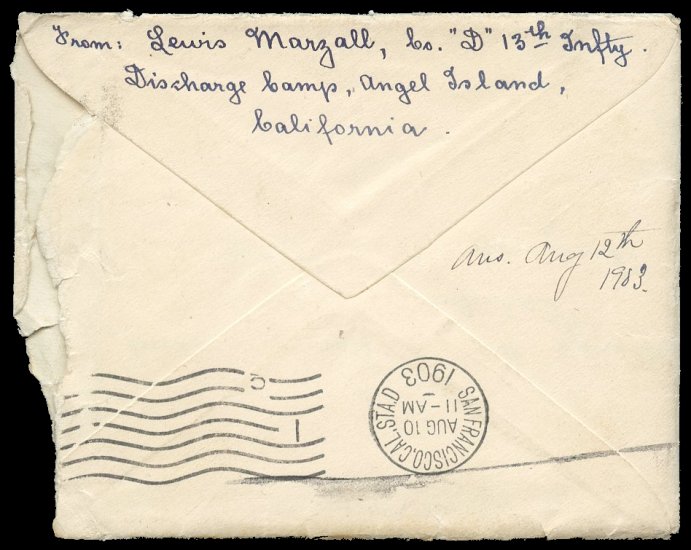 From: Lewis Marzall, Co. "D" 13th Infty.
Discharge Camp, Angel Island,
California.
Ans. Aug 12th
1903.
SAN FRANCISCO, CAL. STA. D
AUG 10
11-AM
1903